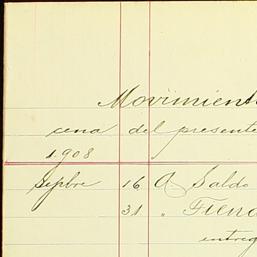 Movimient
cena del presente
1908
Sepbre 16 A Saldo
31 " Fierro
entreg